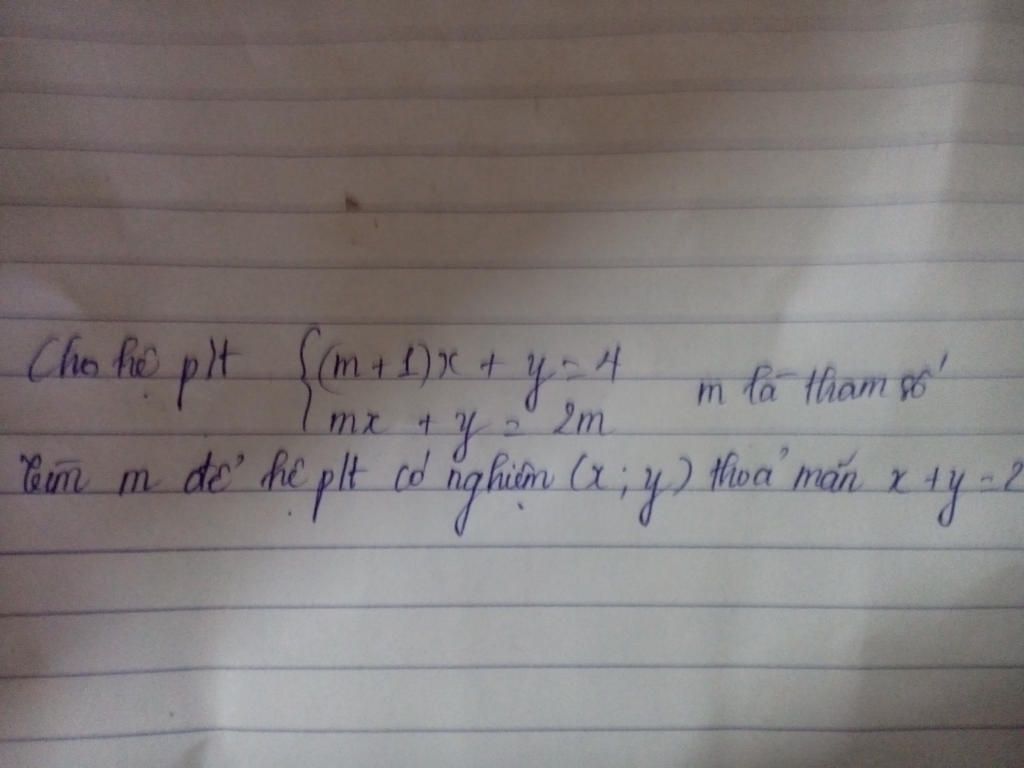 Cho hệ pt { (m+1)x + y = 4 m là tham số
mx + y = 2m
Tìm m để hệ pt có nghiệm (x; y) thoả mãn x + y = 2